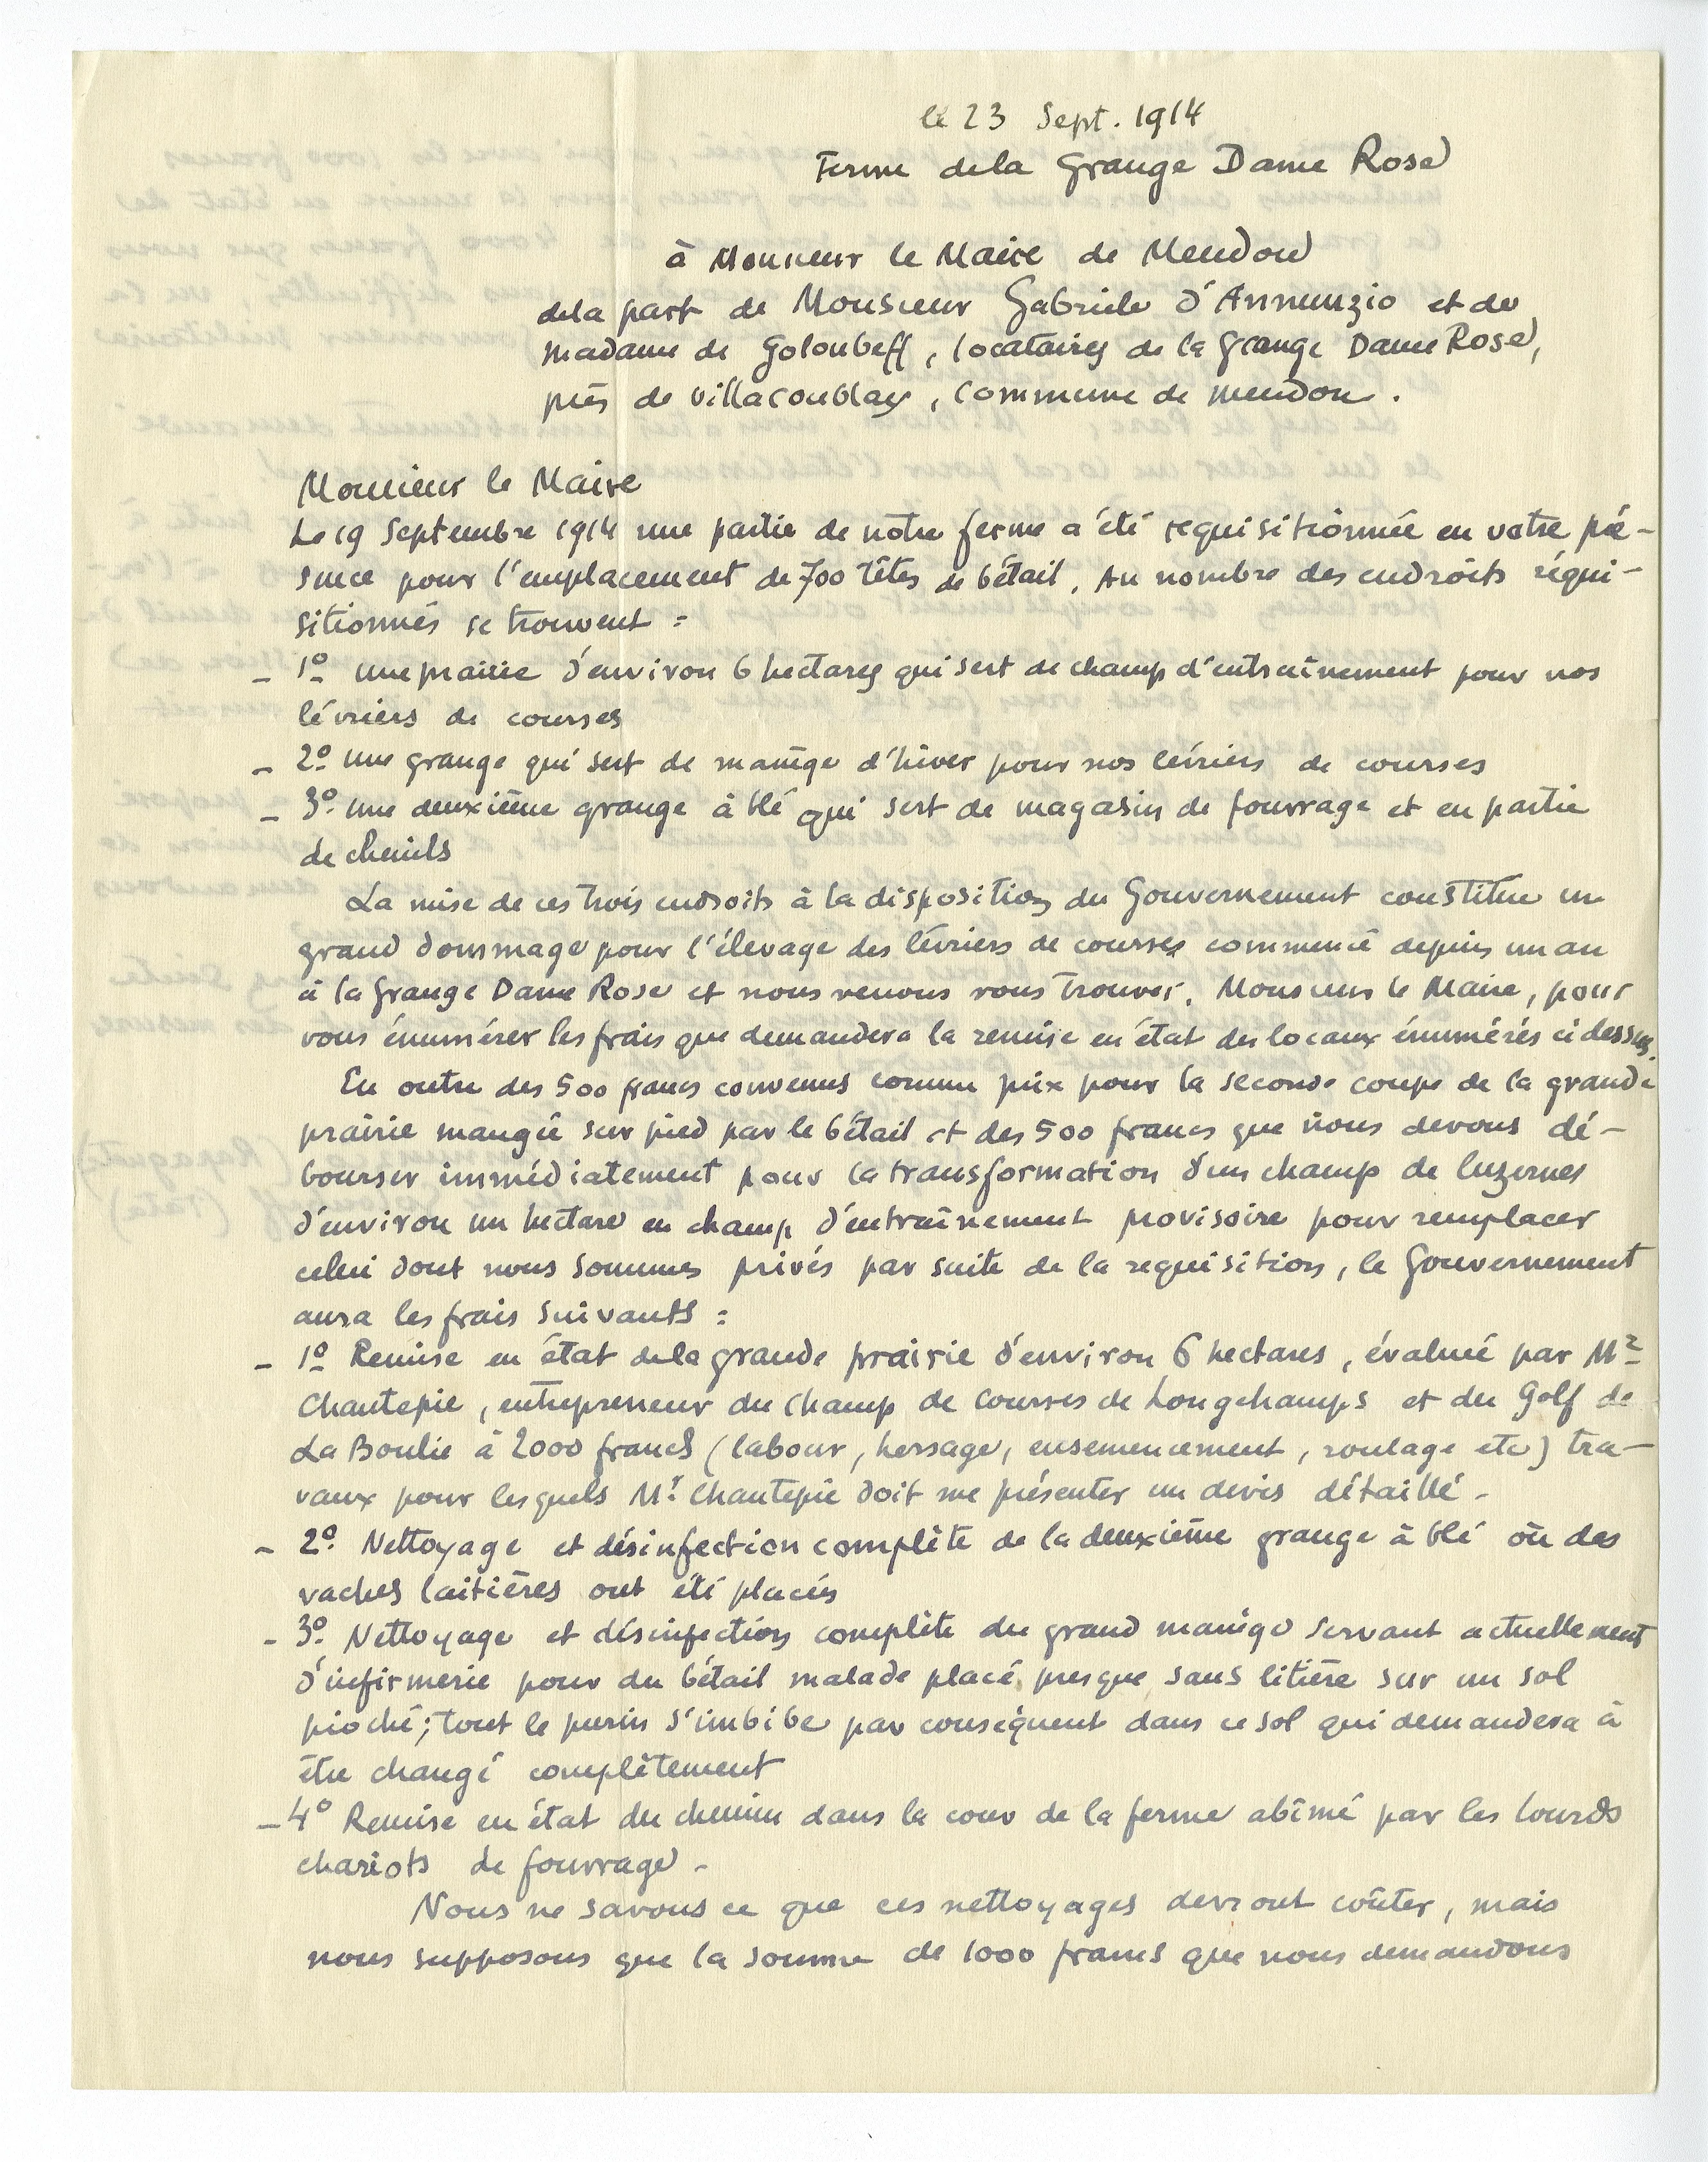 le 23 Sept. 1914
Ferme dela Grange Dame Rose
à Monsieur le Maire de Meudon
dela part de Monsieur Gabriele d'Annunzio et de
Madame de Goloubeff, locataires de la Grange Dame Rose,
près de Villacoublay, Commune de Meudon.
Monsieur le Maire
Le 19 Septembre 1914 une partie de notre ferme a été requisitionnée en votre pré-
sence pour l'emplacement de 700 têtes de bétail. Au nombre des endroits réqui-
sitionnés se trouvent :
- 1º une prairie d'environ 6 hectares qui sert de champ d'entraînement pour nos
lévriers de courses
- 2º une grange qui sert de manège d'hiver pour nos lévriers de courses
- 3º une deuxième grange à blé qui sert de magasin de fourrage et en partie
de chenils
La mise de ces trois endroits à la disposition du Gouvernement constitue un
grand dommage pour l'élevage des lévriers de courses commencé depuis un an
à la Grange Dame Rose et nous venons vous trouver, Monsieur le Maire, pour
vous énumérer les frais que demandera la remise en état des locaux énumérés ci dessus.
En outre des 500 francs convenus comme prix pour la seconde coupe de la grande
prairie mangée sur pied par le bétail et des 500 francs que nous devons dé-
bourser immédiatement pour la transformation d'un champ de luzernes
d'environ un hectare en champ d'entraînement provisoire pour remplacer
celui dont nous sommes privés par suite de la requisition, le Gouvernement
aura les frais suivants :
- 1º Remise en état dela grande prairie d'environ 6 hectares, évaluée par Mr
Chantepie, entrepreneur du Champ de Courses de Longchamps et du Golf de
La Boulie à 2000 francs (labour, hersage, ensemencement, roulage etc) tra-
vaux pour lesquels Mr Chantepie doit me présenter un devis détaillé -
- 2º Nettoyage et désinfection complète de la deuxième grange à blé où des
vaches laitières ont été placées
- 3º Nettoyage et désinfection complète du grand manège servant actuellement
d'infirmerie pour du bétail malade placé presque sans litière sur un sol
pioché ; tout le purin s'imbibe par conséquent dans ce sol qui demandera à
être changé complètement
- 4º Remise en état du chemin dans la cour de la ferme abîmé par les lourds
chariots de fourrage -
Nous ne savons ce que ces nettoyages devront coûter, mais
nous supposons que la somme de 1000 francs que nous demandons